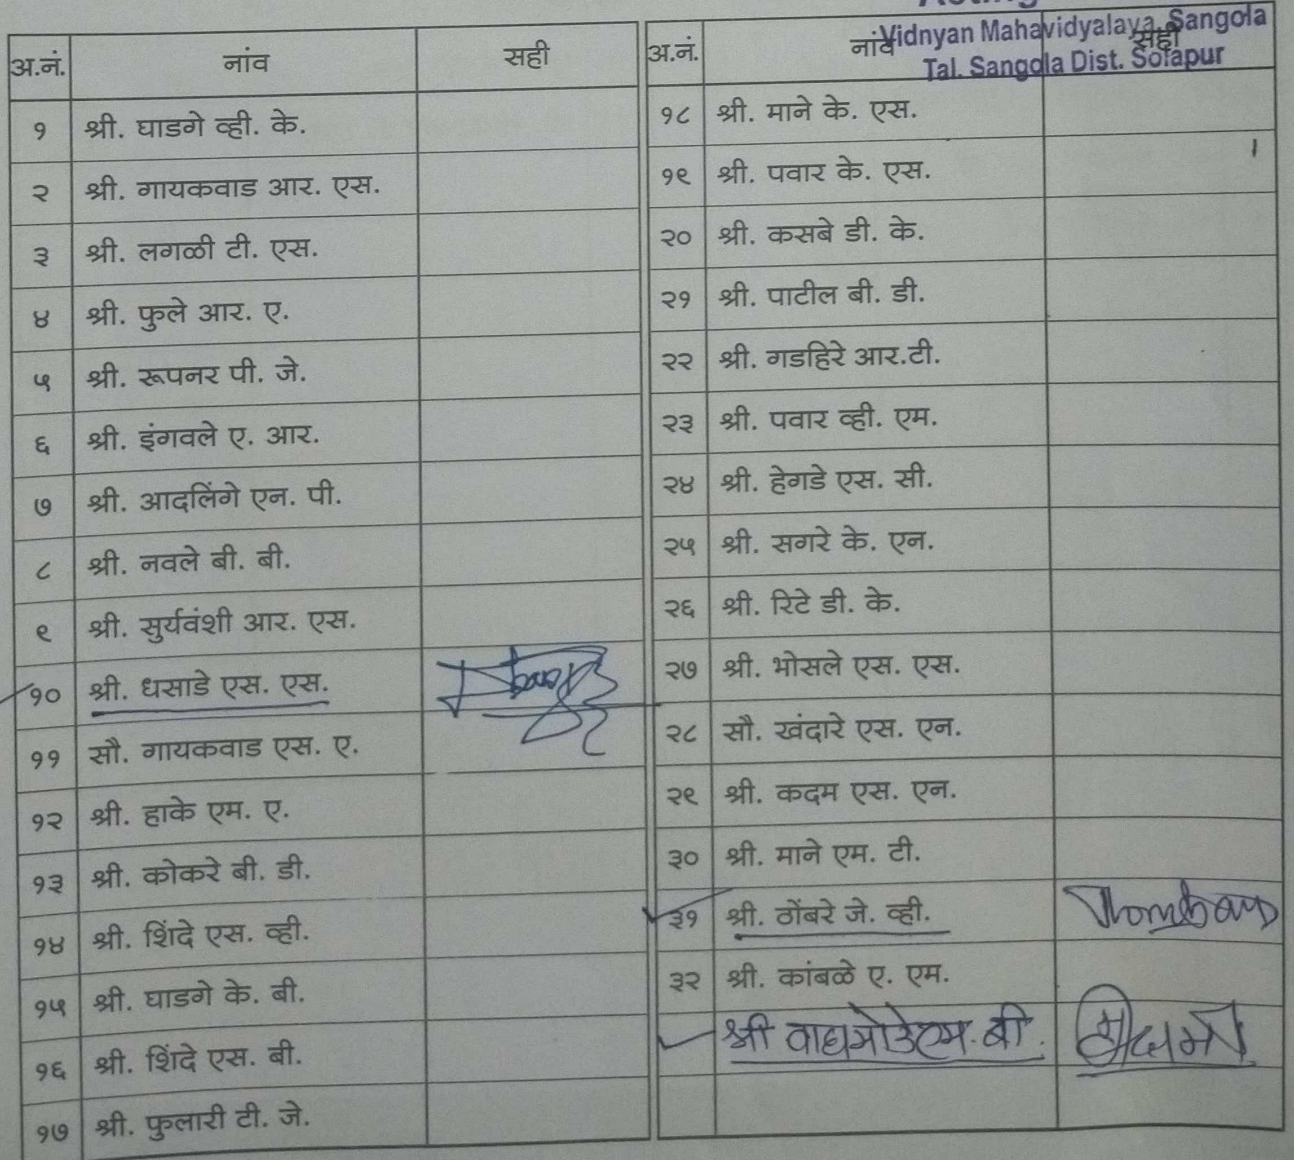 Vidnyan Mahavidyalaya, Sangola
Tal. Sangola Dist. Solapur
अ.नं. नांव सही
१ श्री. घाडगे व्ही. के.
२ श्री. गायकवाड आर. एस.
३ श्री. लगळी टी. एस.
४ श्री. फुले आर. ए.
५ श्री. रूपनर पी. जे.
६ श्री. इंगवले ए. आर.
७ श्री. आदलिंगे एन. पी.
८ श्री. नवले बी. बी.
९ श्री. सुर्यवंशी आर. एस.
१० श्री. धसाडे एस. एस.
११ सौ. गायकवाड एस. ए.
१२ श्री. हाके एम. ए.
१३ श्री. कोकरे बी. डी.
१४ श्री. शिंदे एस. व्ही.
१५ श्री. घाडगे के. बी.
१६ श्री. शिंदे एस. बी.
१७ श्री. फुलारी टी. जे.
अ.नं. नांव सही
१८ श्री. माने के. एस.
१९ श्री. पवार के. एस.
२० श्री. कसबे डी. के.
२१ श्री. पाटील बी. डी.
२२ श्री. गडहिरे आर.टी.
२३ श्री. पवार व्ही. एम.
२४ श्री. हेगडे एस. सी.
२५ श्री. सगरे के. एन.
२६ श्री. रिटे डी. के.
२७ श्री. भोसले एस. एस.
२८ सौ. खंदारे एस. एन.
२९ श्री. कदम एस. एन.
३० श्री. माने एम. टी.
३१ श्री. ठोंबरे जे. व्ही.
३२ श्री. कांबळे ए. एम.
श्री वाघमोडे एम. बी.